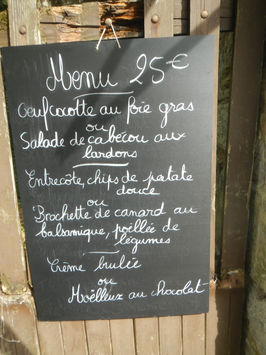 Menu 25€
Oeuf cocotte au foie gras
ou
Salade de cabécou aux
lardons
Entrecôte, chips de patate
douce
ou
Brochette de canard au
balsamique, poêlée de
légumes
Crème brulée
ou
Moëlleux au chocolat